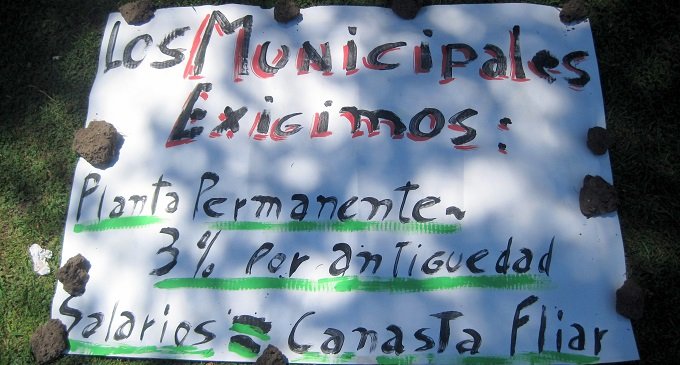 Los Municipales
Exigimos:
Planta Permanente~
3% por antiguedad
Salarios = Canasta Fliar